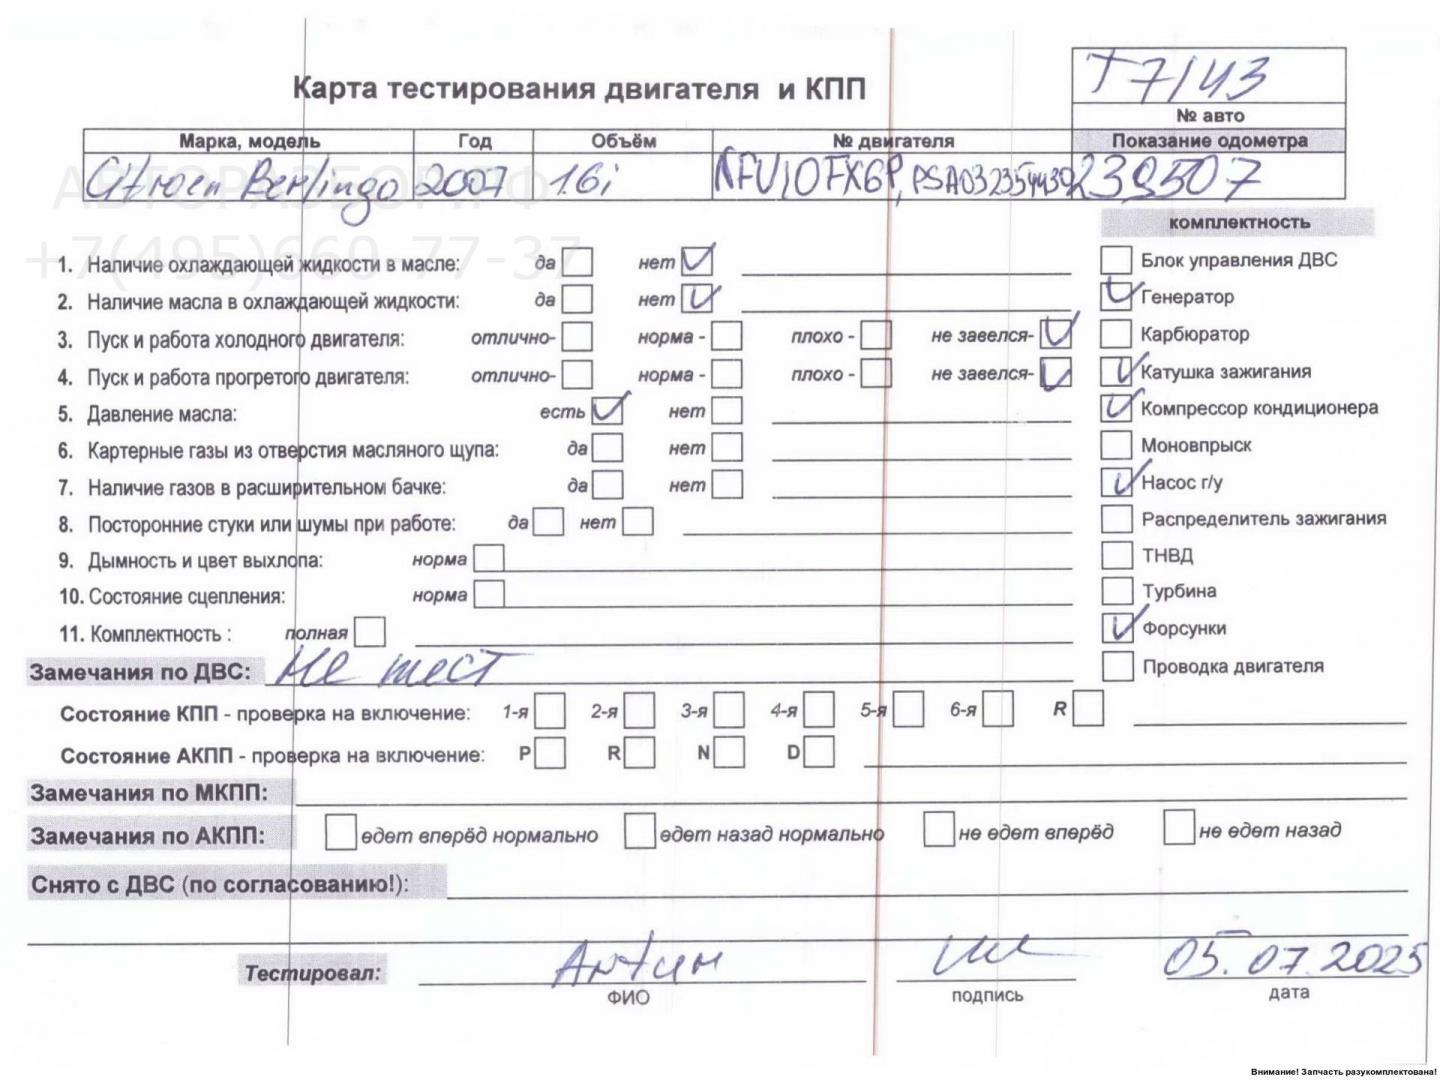 T7143
Карта тестирования двигателя и КПП
№ авто
Марка, модель Год Объём № двигателя Показание одометра
Citroen Berlingo 2007 1.6i NFU10FX6P, 239507
АВТОРАЗБОР.РФ
+7(495)660-77-37
комплектность
1. Наличие охлаждающей жидкости в масле: да нет Блок управления ДВС
2. Наличие масла в охлаждающей жидкости: да нет Генератор
3. Пуск и работа холодного двигателя: отлично- норма - плохо - не завелся- Карбюратор
4. Пуск и работа прогретого двигателя: отлично- норма - плохо - не завелся- Катушка зажигания
5. Давление масла: есть нет Компрессор кондиционера
6. Картерные газы из отверстия масляного щупа: да нет Моновпрыск
7. Наличие газов в расширительном бачке: да нет Насос г/у
8. Посторонние стуки или шумы при работе: да нет Распределитель зажигания
9. Дымность и цвет выхлопа: норма ТНВД
10. Состояние сцепления: норма Турбина
11. Комплектность : полная Форсунки
Замечания по ДВС: Не тест Проводка двигателя
Состояние КПП - проверка на включение: 1-я 2-я 3-я 4-я 5-я 6-я R
Состояние АКПП - проверка на включение: P R N D
Замечания по МКПП:
Замечания по АКПП: едет вперёд нормально едет назад нормально не едет вперёд не едет назад
Снято с ДВС (по согласованию!):
Тестировал: 05.07.2025
ФИО подпись дата
Внимание! Запчасть разукомплектована!